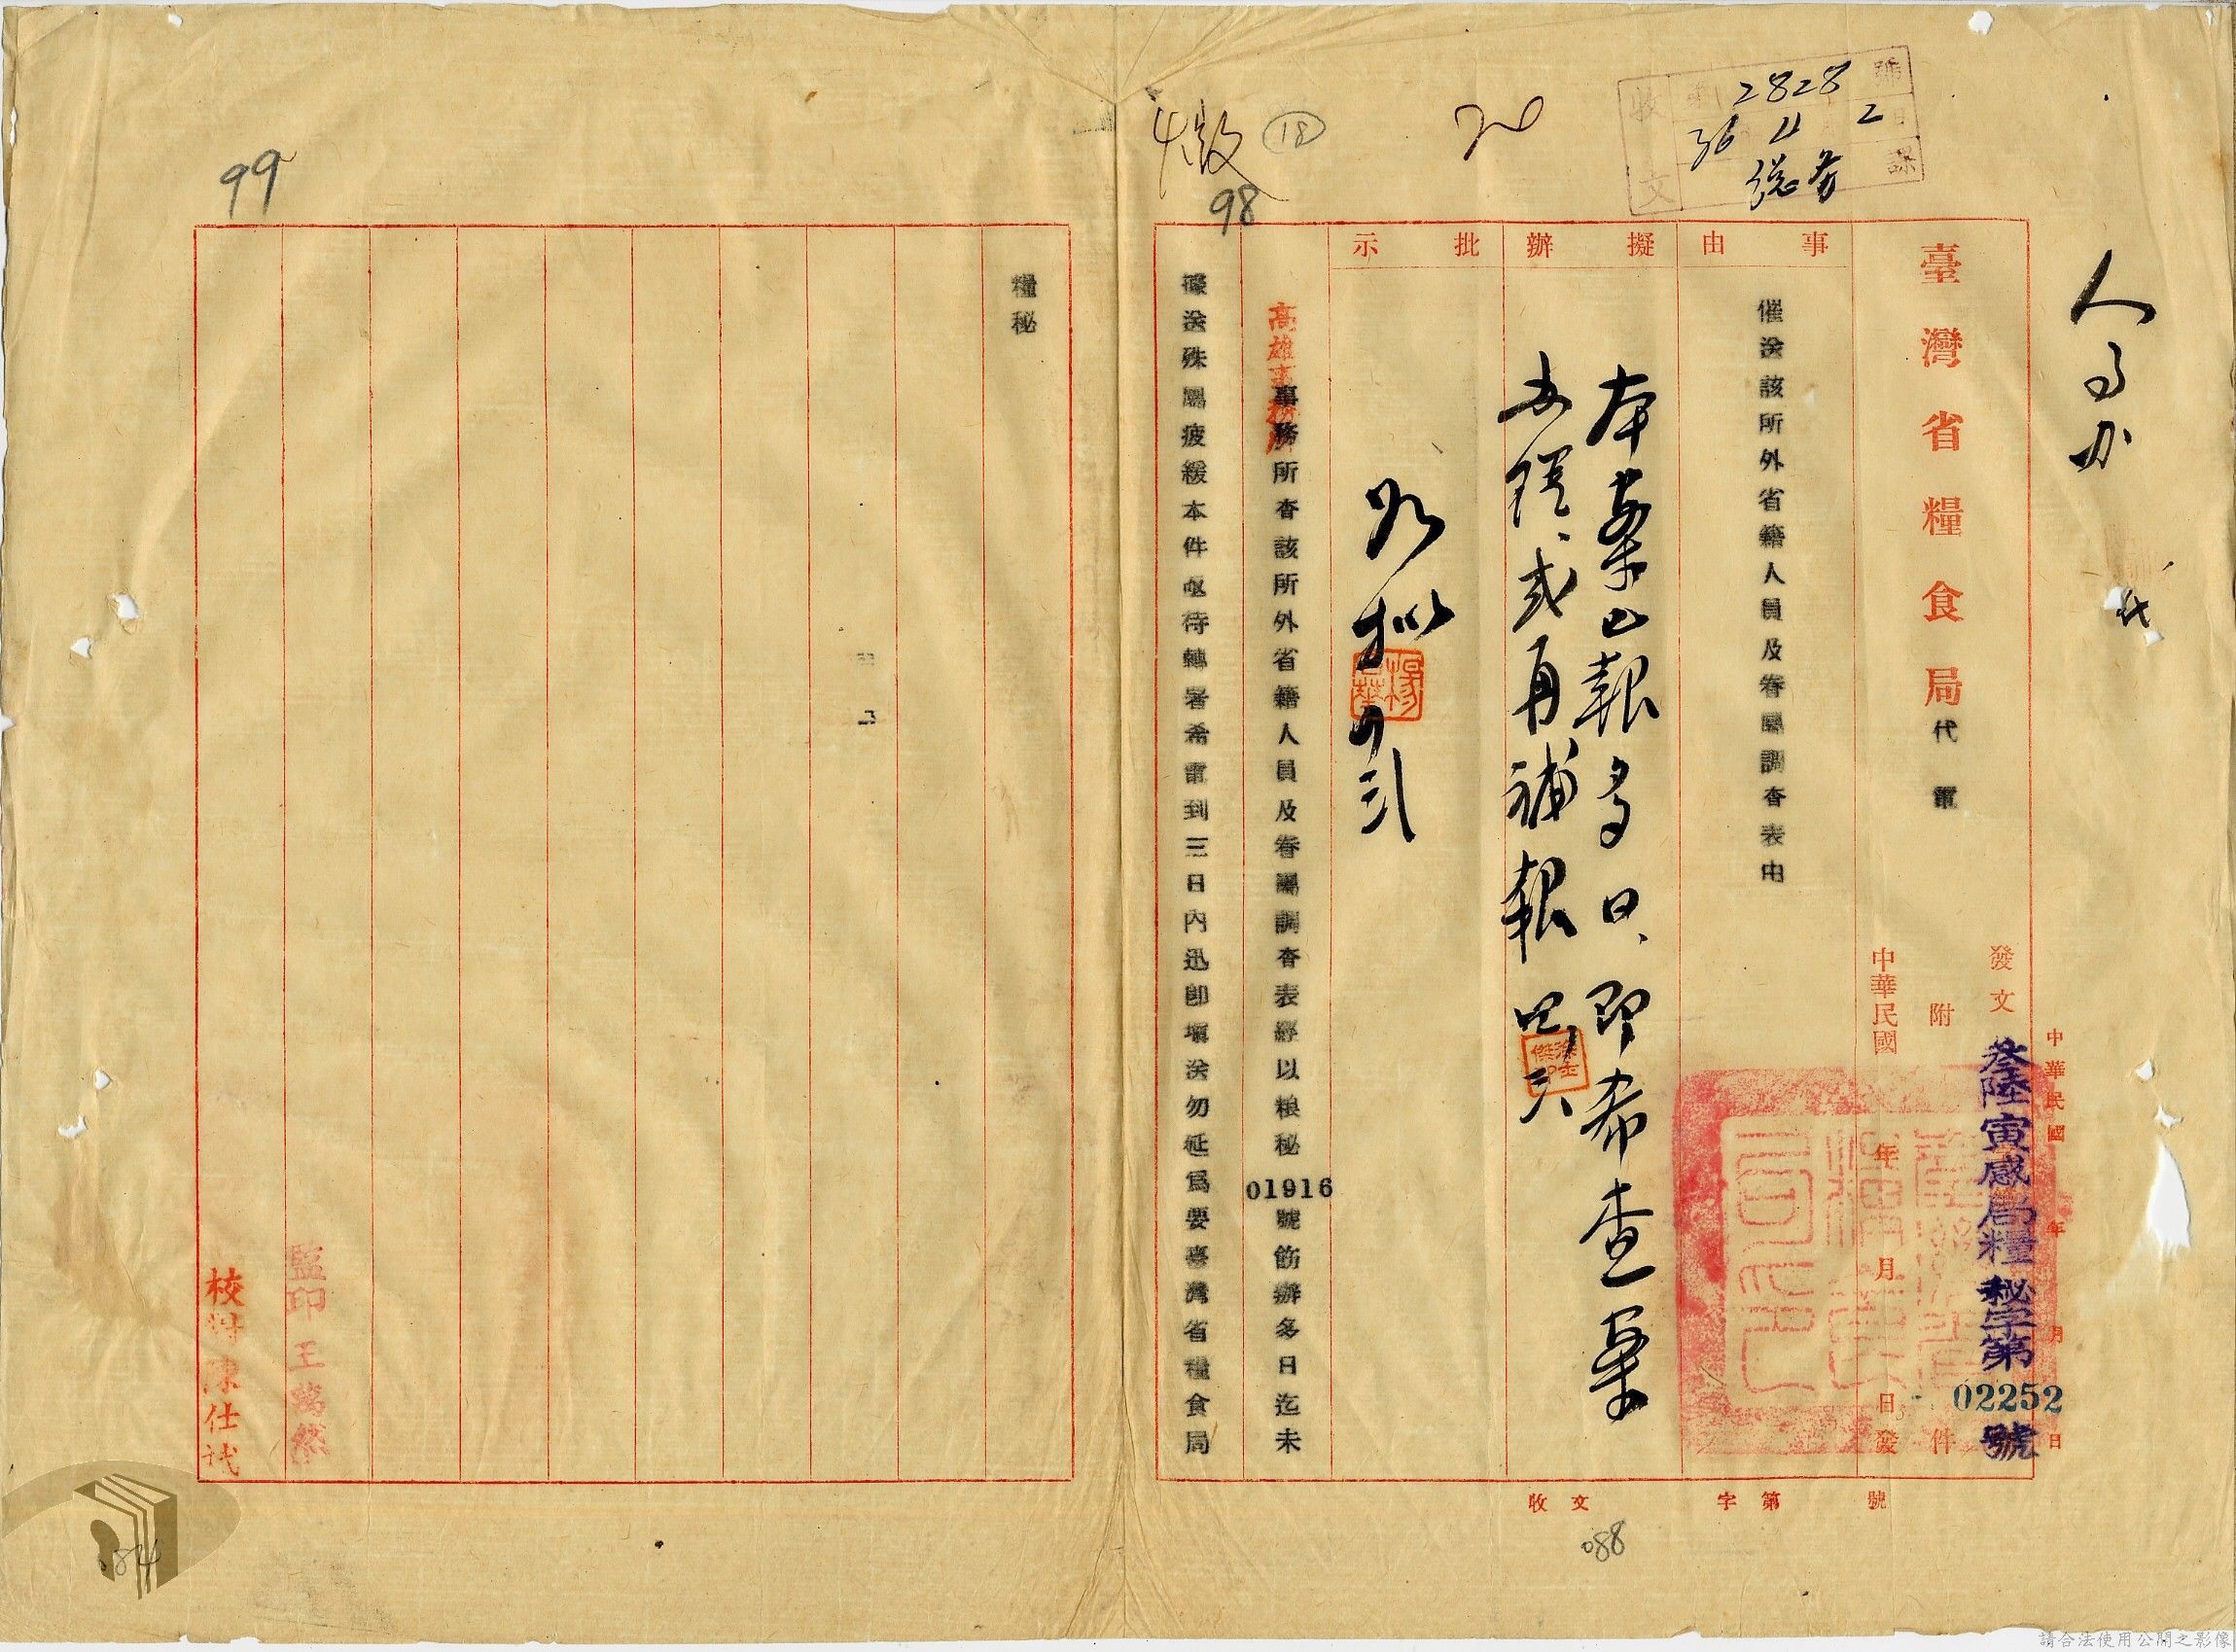 2828
36 11 2
總務
號
日
課
收
文
20
18
繳
98
人事办
臺灣省糧食局代電
發文
參陸寅感局糧秘字第
02252
號
附
件
中華民國
年
月
日發
中華民國
年
月
日
事由
催送該所外省籍人員及眷屬調查表由
擬辦
本案已報多日、即希查案
或再補報
批示
如擬
高雄事務所
事務所查該所外省籍人員及眷屬調查表經以粮秘
01916
號飭辦多日迄未
據送殊屬疲緩本件亟待轉署希電到三日內迅即填送勿延為要臺灣省糧食局
收文
字第
號
088
99
糧秘
監印 王
校對 陳仕
084
請合法使用公開之影像